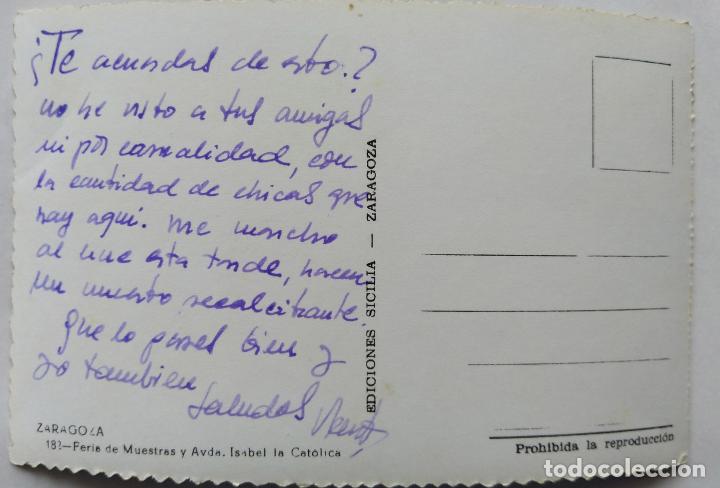 ¿Te acuerdas de esto?
no he visto a tus amigas
ni por casualidad, con
la cantidad de chicas que
hay aquí. me marcho
al cine esta tarde, hacen
un muerto recalcitrante.
que lo pases bien y
yo también
Saludos
ZARAGOZA
182—Feria de Muestras y Avda. Isabel la Católica
EDICIONES SICILIA — ZARAGOZA
Prohibida la reproducción
todocoleccion.net